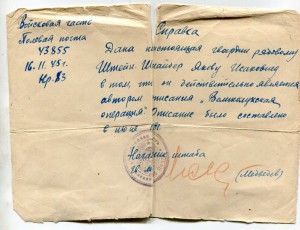 Войсковая часть
Полевая почта
43855
16.11.45г.
Нр. 83
Справка
Дана настоящая гвардии рядовому
Штейн-Шнайдер Якову Исаковичу
в том, что он действительно является
автором описания „Великолукская
операция" Описание было составлено
в июне
Начальник штаба
(Медведев)